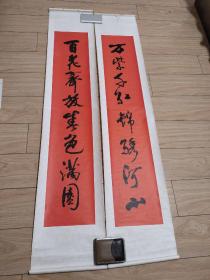 万紫千红锦绣河山
百花齐放春色满园